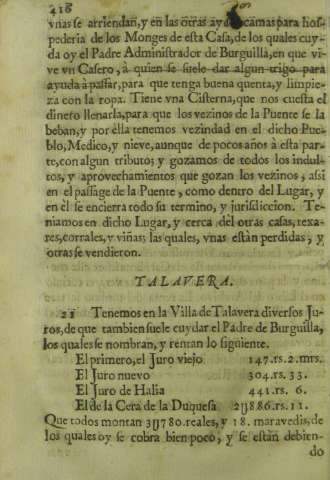 418
vnas se arriendan, y en las otras ay dos camas para hos-
pederia de los Monges de esta Casa, de los quales cuy-
da oy el Padre Administrador de Burguilla, en que vi-
ve vn Casero, à quien se suele dar algun trigo para
ayuda à passar, para que tenga buena quenta, y limpie-
za con la ropa. Tiene vna Cisterna, que nos cuesta el
dinero llenarla, para que los vezinos de la Puente se la
beban, y por ella tenemos vezindad en el dicho Pue-
blo, Medico, y nieve, aunque de pocos años à esta par-
te, con algun tributo; y gozamos de todos los indul-
tos, y aprovechamientos que gozan los vezinos, assi
en el passage de la Puente, como dentro del Lugar, y
en èl se encierra todo su termino, y jurisdiccion. Te-
niamos en dicho Lugar, y cerca del otras casas, texa-
res, corrales, y viñas; las quales, vnas estàn perdidas, y
otras se vendieron.
TALAVERA.
21 Tenemos en la Villa de Talavera diversos Ju-
ros, de que tambien suele cuydar el Padre de Burguilla,
los quales se nombran, y rentan lo siguiente.
El primero, el Juro viejo 147.rs.2.mrs.
El Juro nuevo 304.rs.33.
El Juro de Halia 441.rs. 6.
El de la Cera de la Duquesa 2y886.rs.11.
Que todos montan 3y780.reales, y 18. maravedis, de
los quales oy se cobra bien poco, y se estàn debien-
do